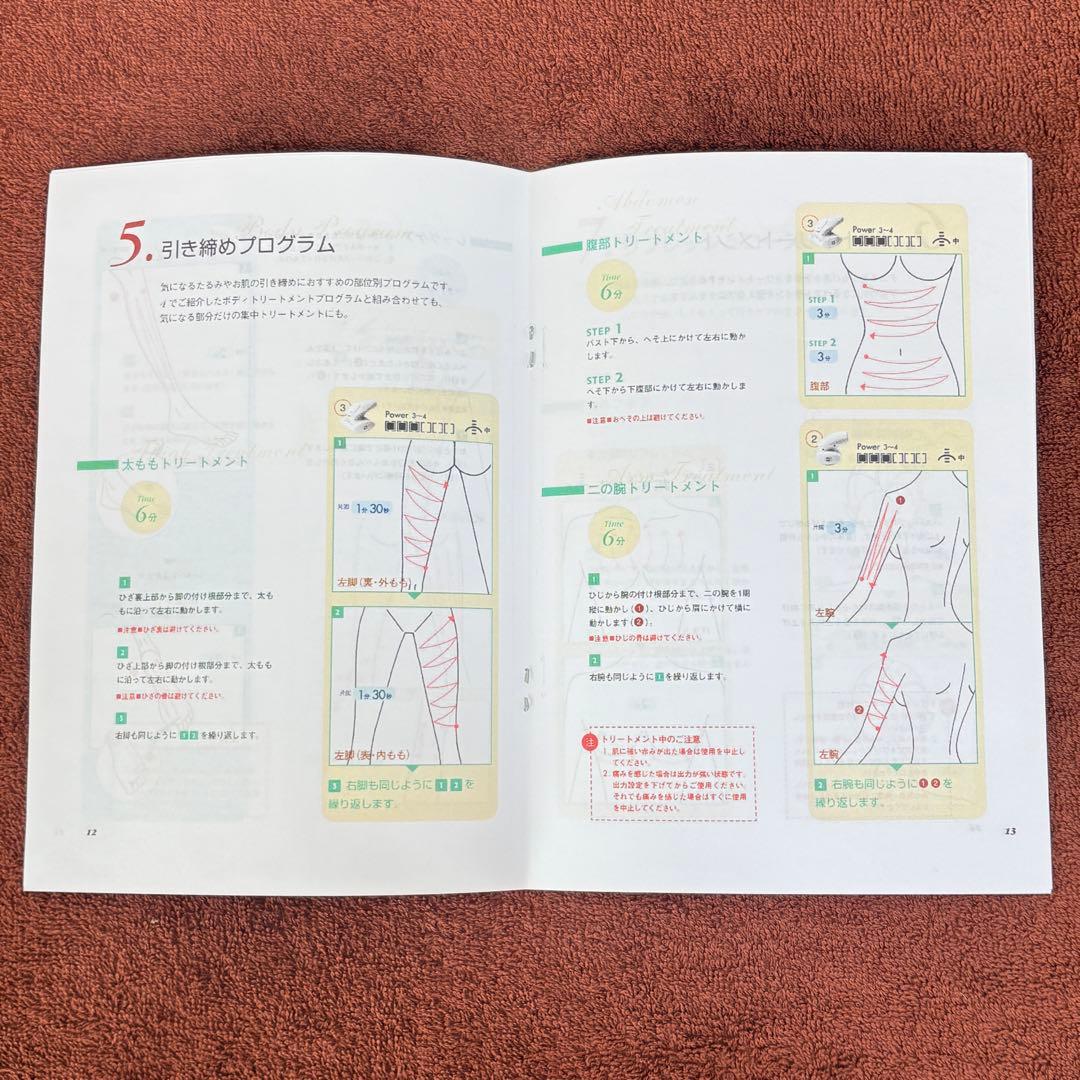 5. 引き締めプログラム
気になるたるみやお肌の引き締めにおすすめの部位別プログラムです。
4でご紹介したボディトリートメントプログラムと組み合わせても、
気になる部分だけの集中トリートメントにも。
太ももトリートメント
Time
6分
1
ひざ裏上部から脚の付け根部分まで、太も
もに沿って左右に動かします。
■注意■ひざ裏は避けてください。
2
ひざ上部から脚の付け根部分まで、太もも
に沿って左右に動かします。
■注意■ひざの骨は避けてください。
3
右脚も同じように 1 2 を繰り返します。
3
Power 3~4
中
1
片脚 1分30秒
左脚(裏・外もも)
2
片脚 1分30秒
左脚(表・内もも)
3 右脚も同じように 1 2 を
繰り返します。
12
Abdomen
Treatment
腹部トリートメント
Time
6分
STEP 1
バスト下から、へそ上にかけて左右に動か
します。
STEP 2
へそ下から下腹部にかけて左右に動かしま
す。
■注意■おへその上は避けてください。
3
Power 3~4
中
1
STEP 1
3分
STEP 2
3分
腹部
Treatment
二の腕トリートメント
Time
6分
1
ひじから腕の付け根部分まで、二の腕を1周
縦に動かし(❶)、ひじから肩にかけて横に
動かします(❷)。
■注意■ひじの骨は避けてください。
2
右腕も同じように 1 を繰り返します。
注 トリートメント中のご注意
1. 肌に強い赤みが出た場合は使用を中止し
てください。
2. 痛みを感じた場合は出力が強い状態です。
出力設定を下げてからご使用ください。
それでも痛みを感じた場合はすぐに使用
を中止してください。
2
Power 3~4
中
1
❶
片腕 3分
左腕
❷
左腕
2 右腕も同じように❶❷を
繰り返します。
13